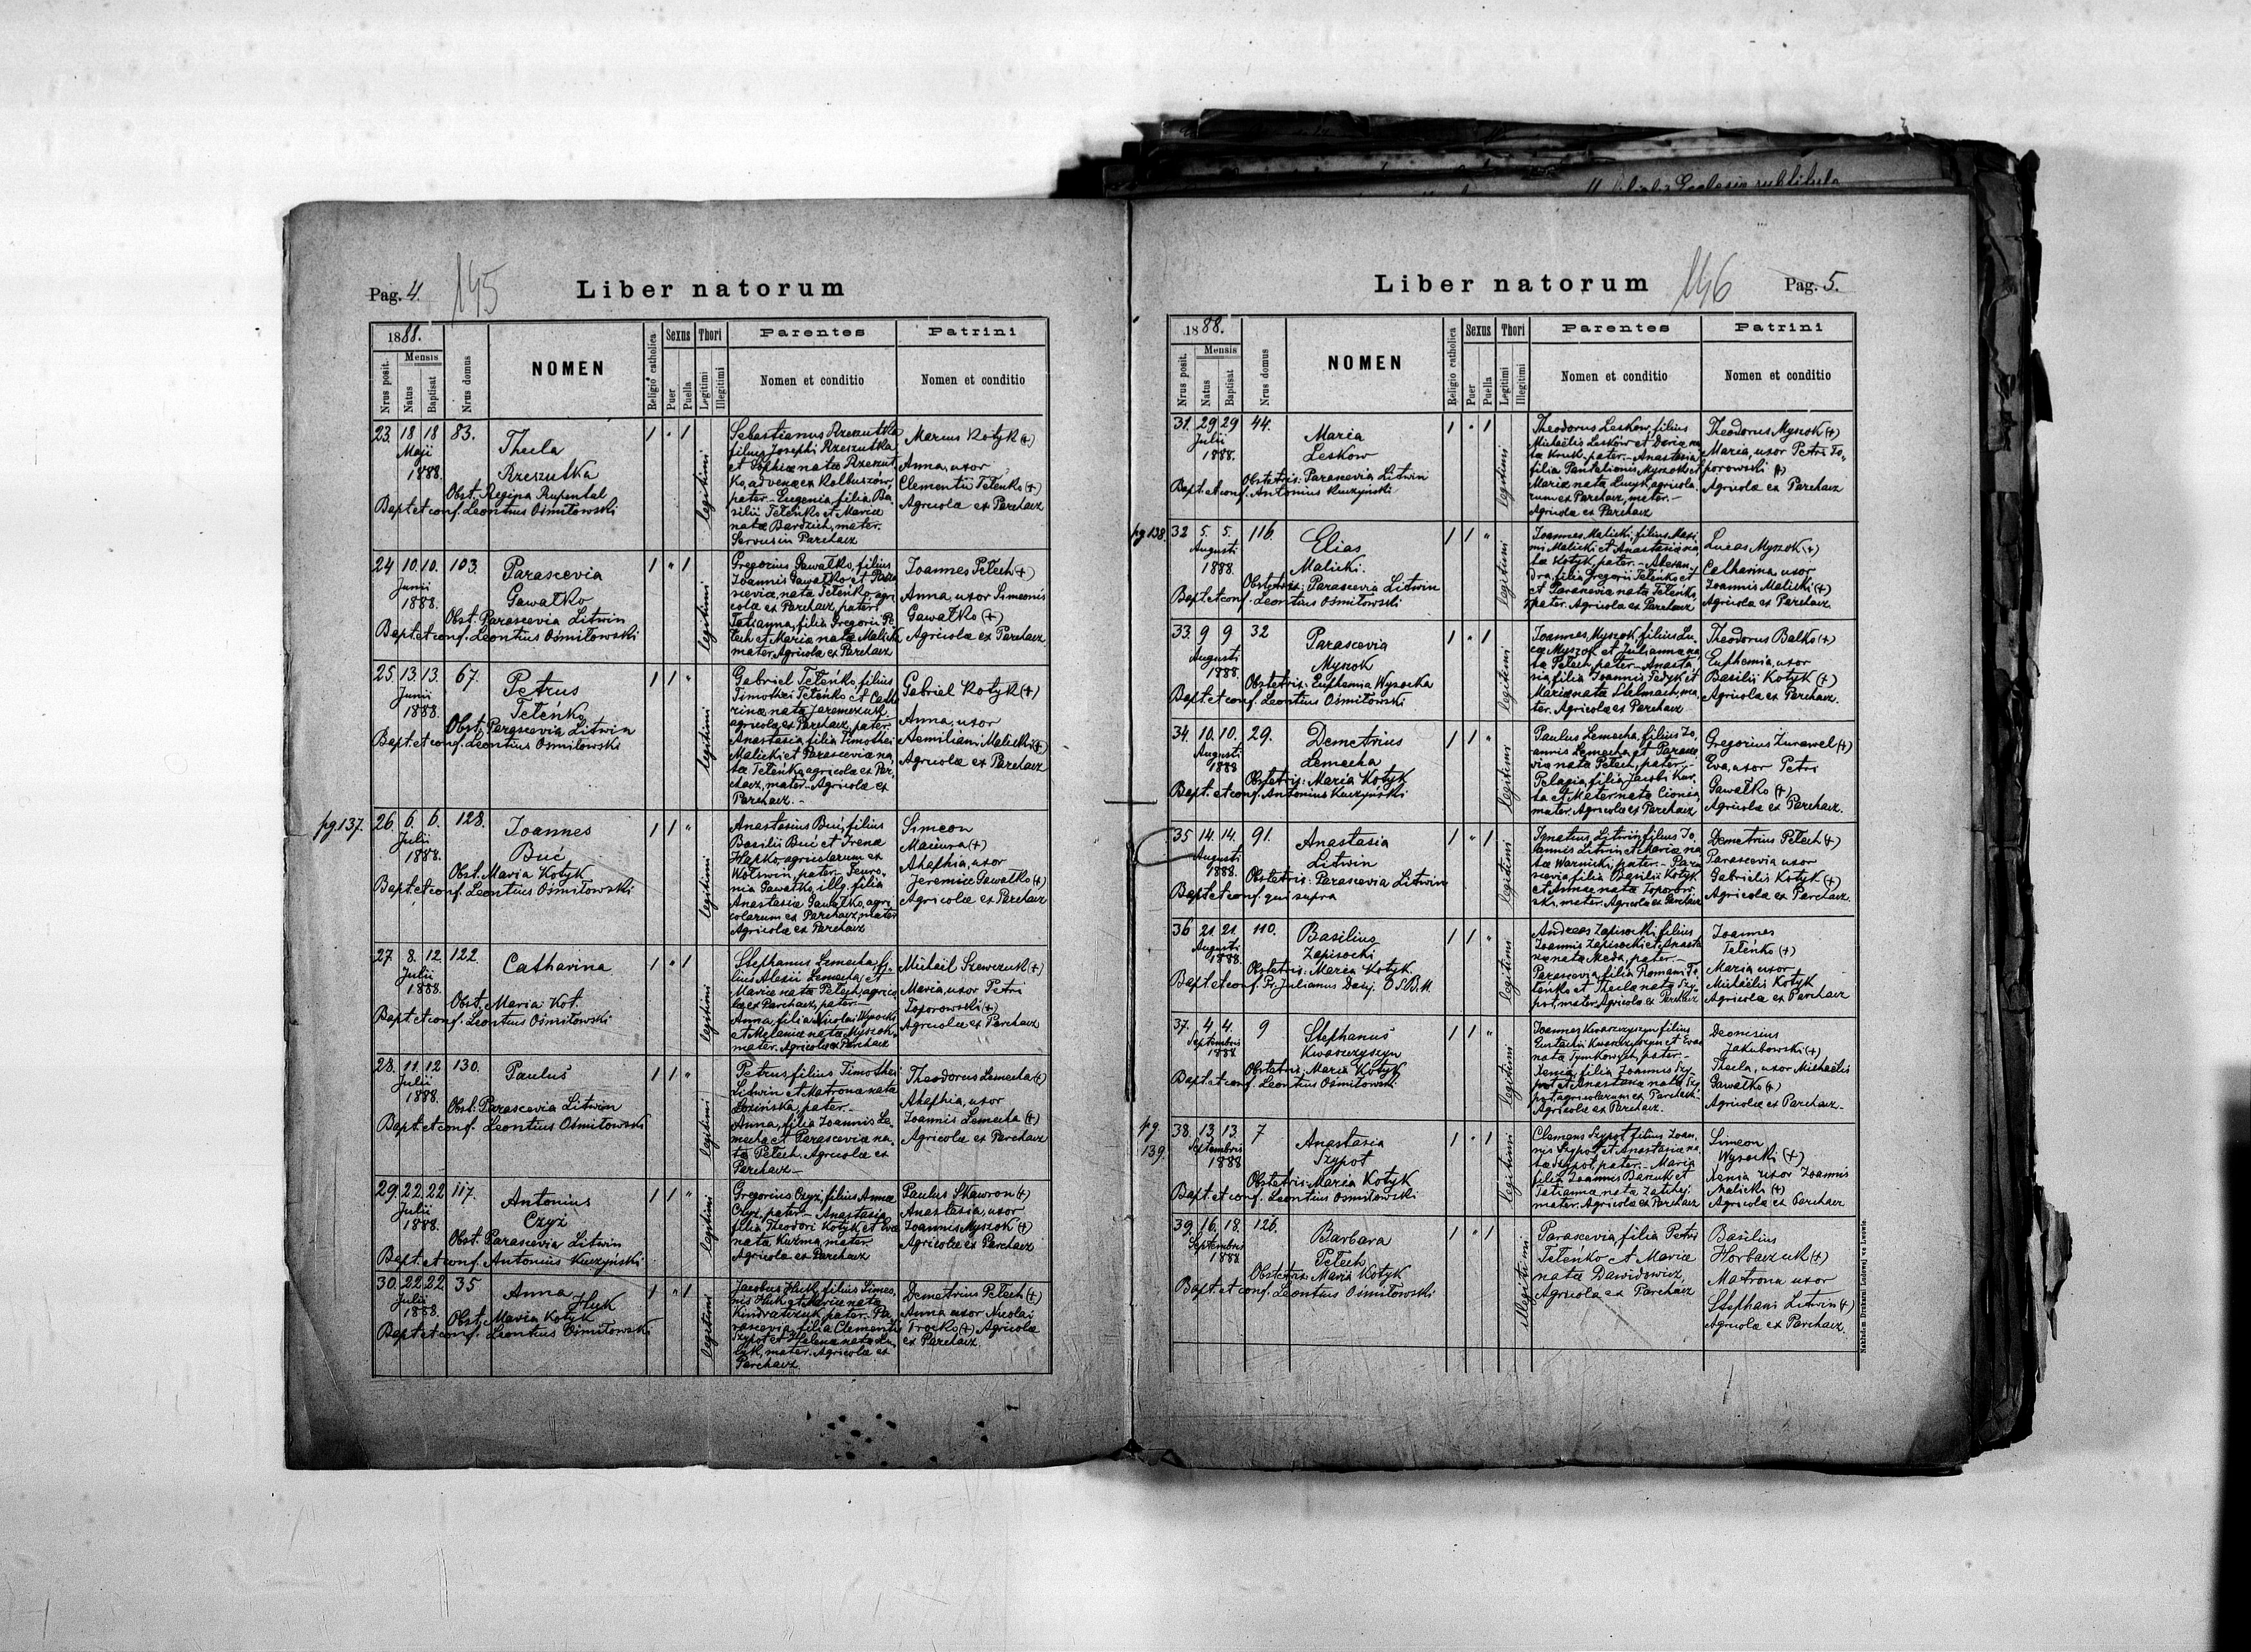 Pag. 4.
145
Liber natorum
1888.
Mensis
Nrus posit.
Natus
Baptisat
Nrus domus
NOMEN
Religio catholica
Sexus
Puer
Puella
Thori
Legitimi
Illegitimi
Parentes
Nomen et conditio
Patrini
Nomen et conditio
23. 18 18 83.
Maji
1888.
Thecla
Rzeszutka
Obst. Regina Rupental
Bapt. et conf. Leontius Ośmiłowski
1 " 1
legitimi
Sebastianus Rzeszutka
filius Josephi Rzeszutka
et Sophiae nata Rzeszut
ko, advena ex Kolbuszów,
pater.- Eugenia filia Ba
silii Teteńko et Mariae
nata Bardzich, mater.
Servus in Parchacz
Marcus Kotyk (+)
Anna, uxor
Clementii Teteńko (+)
Agricolae ex Parchacz
24 10. 10. 103.
Junii
1888.
Parascevia
Gawałko
Obst. Parascevia Litwin
Bapt. et conf. Leontius Ośmiłowski
1 " 1
legitimi
Gregorius Gawałko, filius
Joannis Gawałko et Para
sceviae nata Teteńko, agri
colae ex Parchacz, pater.
Tatianna, filia Gregorii Pe
tech et Mariae nata Malick
mater. Agricolae ex Parchacz
Joannes Petech (+)
Anna, uxor Simeonis
Gawałko (+)
Agricolae ex Parchacz
25. 13. 13. 67.
Junii
1888.
Petrus
Teteńko
Obst. Parascevia Litwin
Bapt. et conf. Leontius Ośmiłowski
1 1 "
legitimi
Gabriel Teteńko, filius
Timothei Teteńko et Catha
rinae nata Jaremczuk
agricolae ex Parchacz, pater
Anastasia filia Timothei
Malicki et Parasceviae na
ta Teteńko, agricolae ex Par
chacz, mater.- Agricolae ex
Parchacz.-
Gabriel Kotyk (+)
Anna, uxor
Aemiliani Malicki (+)
Agricolae ex Parchacz
pg 137.
26. 6. 6. 128.
Julii
1888.
Joannes
Buć
Obst. Maria Kotyk
Bapt. et conf. Leontius Ośmiłowski
1 1 "
legitimi
Anastasius Buć, filius
Basilii Buć et Irena
Hapko, agricolarum ex
Wolswin, pater.- Feuro
nia Gawałko, illg. filia
Anastasiae Gawałko, agri
colarum ex Parchacz, mater
Agricolae ex Parchacz
Simeon
Maciura (+)
Ahaphia, uxor
Jeremiae Gawałko (+)
Agricolae ex Parchacz
27 8. 12. 122.
Julii
1888.
Catharina
Obst. Maria Kot.
Bapt. et conf. Leontius Ośmiłowski
1 " 1
legitimi
Stephanus Lemecha, fi
lius Alexii Lemecha et
Mariae nata Petech, agrico
lae ex Parchacz, pater.-
Anna, filia Nicolai Wysocki
et Melaniae nata Myszok,
mater. Agricolae ex Parchacz
Michaël Szewczuk (+)
Maria, uxor Petri
Toporowski (+)
Agricolae ex Parchacz
28. 11. 12 130.
Julii
1888.
Paulus
Obst. Parascevia Litwin
Bapt. et conf. Leontius Ośmiłowski
1 1 "
legitimi
Petrus filius Timothei
Litwin et Matrona nata
Łozińska, pater.-
Anna, filia Joannis Le
mecha et Parasceviae na
ta Petech. Agricolae ex
Parchacz.-
Theodorus Lemecha (+)
Ahaphia, uxor
Joannis Lemecha (+)
Agricolae ex Parchacz
29. 22. 22 117.
Julii
1888.
Antonius
Czyz
Obst. Parascevia Litwin
Bapt. et conf. Antonius Kuczyński
1 1 "
legitimi
Gregorius Czyz, filius Annae
Czyz, pater.- Anastasia
filia Theodori Kotyk et Eva
nata Kuźma, mater.
Agricolae ex Parchacz
Paulus Skawron (+)
Anastasia, uxor
Joannis Myszok (+)
Agricolae ex Parchacz
30. 22. 22 35
Julii
1888.
Anna
Huk
Obst. Maria Kotyk
Bapt. et conf. Leontius Ośmiłowski
1 " 1
legitimi
Jacobus Huk, filius Simeo
nis Huk et Mariae nata
Kindratczuk, pater. Pa
rascevia, filia Clementis
Szypot et Helenae nata
mater. Agricolae ex
Parchacz
Demetrius Petech (+)
Anna uxor Nicolai
Trocko (+) Agricolae
ex Parchacz.
Liber natorum
146
Pag. 5.
1888.
Mensis
Nrus posit.
Natus
Baptisat
Nrus domus
NOMEN
Religio catholica
Sexus
Puer
Puella
Thori
Legitimi
Illegitimi
Parentes
Nomen et conditio
Patrini
Nomen et conditio
31. 29 29 44.
Julii
1888.
Maria
Leskow
Obstetrix: Parascevia Litwin
Bapt. et conf. Antonius Kuczyński
1 " 1
legitimi
Theodorus Leskow, filius
Michaëlis Lesków et Daria na
ta Kruk, pater.- Anastasia
filia Pantalionis Myszok et
Mariae nata agricola
rum ex Parchacz, mater.-
Agricolae ex Parchacz
Theodorus Myszok (+)
Maria, uxor Petri To
porowski (+)
Agricolae ex Parchacz
pg 138.
32 5. 5. 116.
Augusti
1888.
Elias
Malicki.
Obstetrix: Parascevia Litwin
Bapt. et conf. Leontius Ośmiłowski
1 1 "
legitimi
Joannes Malicki, filius Maxi
mi Malicki et Anastasiae na
ta Kotyk, pater.- Alexan
dra, filia Gregorii Teteńko et
et Parasceviae nata Teteńko,
mater. Agricolae ex Parchacz
Lucas Myszok (+)
Catharina uxor
Joannis Malicki (+)
Agricolae ex Parchacz.
33. 9 9 32
Augusti
1888.
Parascevia
Myszok
Obstetrix: Euphemia Wysocka
Bapt. et conf. Leontius Ośmiłowski
1 " 1
legitimi
Joannes Myszok, filius Lu
cae Myszok et Julianna na
ta Petech, pater.- Anasta
sia, filia Joannis Fedyk et
Mariae nata Stelmach, ma
ter. Agricolae ex Parchacz
Theodorus Balko (+)
Euphemia, uxor
Basilii Kotyk (+)
Agricolae ex Parchacz.
34. 10. 10. 29.
Augusti
1888
Demetrius
Lemecha
Obstetrix: Maria Kotyk
Bapt. et conf. Antonius Kuczyński
1 1 "
legitimi
Paulus Lemecha, filius Jo
annis Lemecha et Parasce
via nata Petech, pater.-
Pelagia, filia Jacobi
mater. Agricolae ex Parchacz
Gregorius Zurawel (+)
Eva, uxor Petri
Gawałko (+)
Agricolae ex Parchacz.
35 14. 14. 91.
Augusti
1888.
Anastasia
Litwin
Obstetrix: Parascevia Litwin
Bapt. et conf. qui supra
1 " 1
legitimi
Ignatius Litwin, filius Jo
annis Litwin et Mariae na
ta Warnicki, pater.- Para
scevia filia Basilii Kotyk
et Annae nata Toporow
ski, mater. Agricolae ex Parchacz
Demetrius Petech (+)
Parascevia uxor
Gabrielis Kotyk (+)
Agricolae ex Parchacz.
36 21. 21. 110.
Augusti
1888.
Basilius
Zapisocki
Obstetrix: Maria Kotyk.
Bapt. et conf. Fr. Julianus Dacij. O.S.B.M.
1 1 "
legitimi
Andreas Zapisocki, filius
Joannis Zapisocki et Anasta
siae nata Meda, pater.-
Parascevia, filia Romani Te
teńko et Thecla nata Szy
pot, mater. Agricolae ex Parchacz
Joannes
Teteńko (+)
Maria uxor
Michaëlis Kotyk
Agricolae ex Parchacz
37. 4. 4. 9
Septembris
1888
Stephanus
Kwarczyszyn
Obstetrix: Maria Kotyk
Bapt. et conf. Leontius Ośmiłowski
1 1 "
legitimi
Joannes Kwarczyszyn filius
Eustachii Kwarczyszyn et Evae
nata Tymkowych, pater.-
Xenia, filia Joannis Szy
pot et Anastasiae nata Szy
pot, agricolarum ex Parchacz.
Agricolae ex Parchacz.
Deonisius
Jakubowski (+)
Thecla, uxor Michaëlis
Gawałko (+)
Agricolae ex Parchacz.-
pg
139.
38. 13. 13. 7
Septembris
1888
Anastasia
Szypot
Obstetrix: Maria Kotyk
Bapt. et conf. Leontius Ośmiłowski
1 " 1
legitimi
Clemens Szypot filius Joan
nis Szypot et Anastasiae na
ta Szypot, pater.- Maria
filia Joannis Baszuk et
Tatianna nata Zatchej
mater. Agricolae ex Parchacz
Simeon
Wysocki (+)
Xenia uxor Joannis
Malicki (+)
Agricolae ex Parchacz
39. 16. 18. 126.
Septembris
1888
Barbara
Petech
Obstetrix: Maria Kotyk
Bapt. et conf. Leontius Ośmiłowski
1 " 1
illegitimi
Parascevia, filia Petri
Teteńko et Mariae
nata Dawidowicz,
Agricolae ex Parchacz
Basilius
Horbaczuk (+)
Matrona uxor
Stephani Litwin (+)
Agricolae ex Parchacz.
Nakładem Drukarni Ludowej we Lwowie.